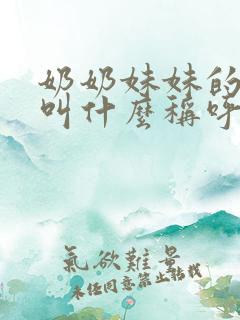 奶奶妹妹的
叫什麼稱呼
氣欲難景
未经同意禁止转载